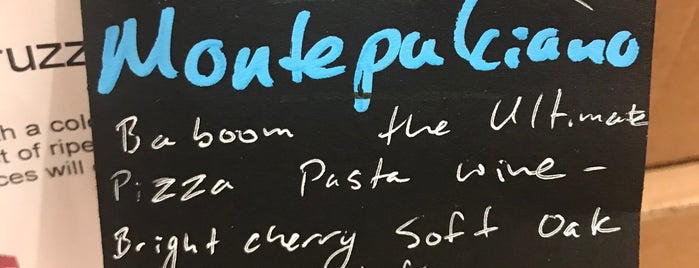 ruzz
h a col
t of ripe
ces will
Montepulciano
Baboom the Ultimate
Pizza Pasta wine -
Bright cherry Soft Oak